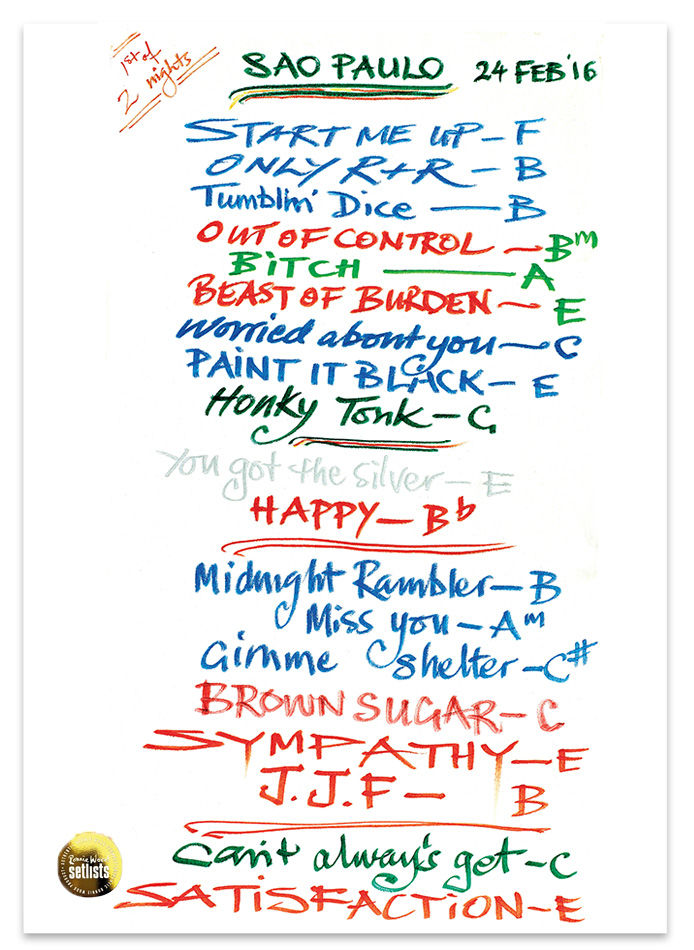 1st of
2 nights
SAO PAULO 24 FEB '16
START ME UP – F
ONLY R+R – B
Tumblin' Dice — B
OUT OF CONTROL – Bm
BITCH — A
BEAST OF BURDEN – E
Worried about you – C
PAINT IT BLACK – E
Honky Tonk – G
You got the silver – E
HAPPY – Bb
Midnight Rambler – B
Miss you – Am
Gimme shelter – C#
BROWN SUGAR – C
SYMPATHY – E
J.J.F – B
Can't always get – C
SATISFACTION – E
Ronnie Wood
setlists